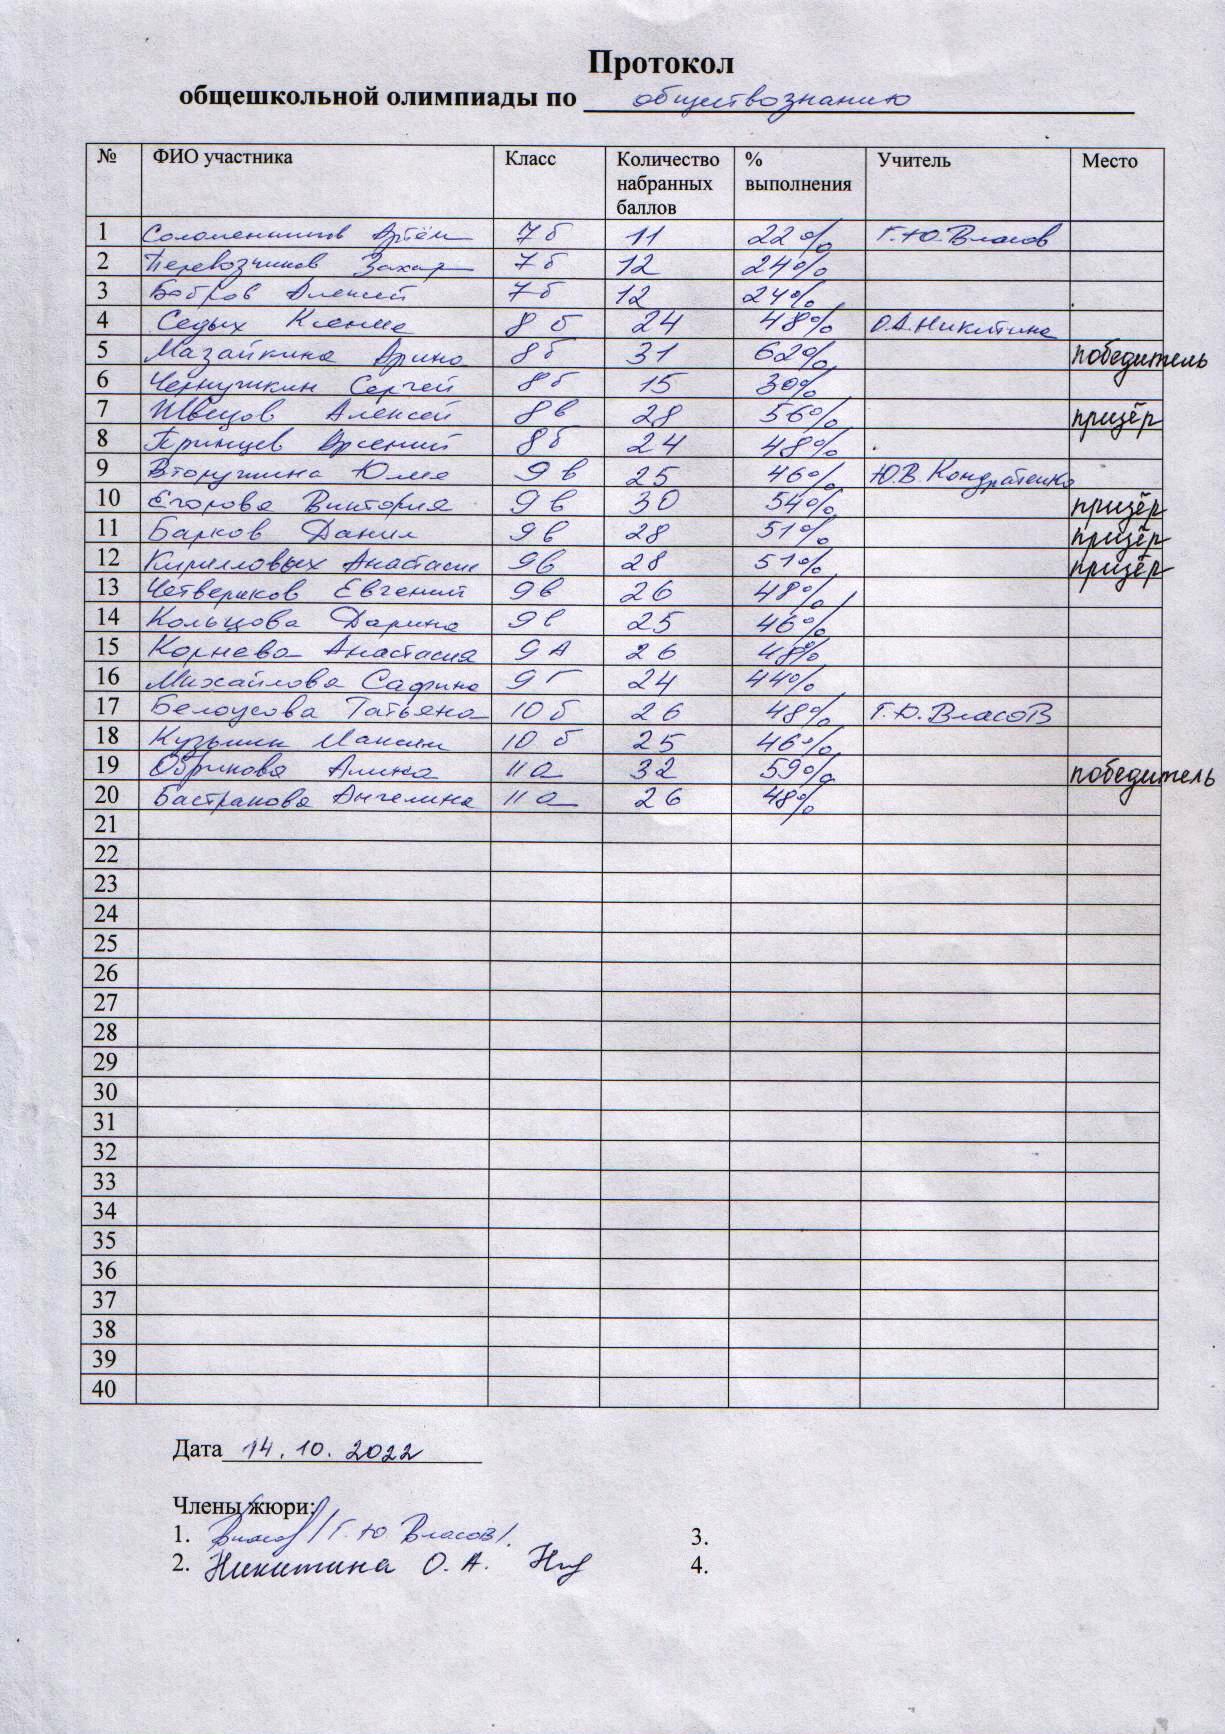 Протокол
общешкольной олимпиады по обществознанию
№ ФИО участника Класс Количество набранных баллов % выполнения Учитель Место
1 Соломенников Артём 7 б 11 22% Г.Ю.Власов
2 Перевозчиков Захар 7 б 12 24%
3 Бобров Алексей 7 б 12 24%
4 Седых Ксения 8 б 24 48% О.А.Никитина
5 Мазайкина Арина 8 б 31 62% победитель
6 Чернушкин Сергей 8 б 15 30%
7 Швецов Алексей 8 в 28 56% призёр
8 Принцев Арсений 8 б 24 48%
9 Вторушина Юлия 9 в 25 46% Ю.В.Кондратенко
10 Егорова Виктория 9 в 30 54% призёр
11 Барков Данил 9 в 28 51% призёр
12 Кирилловых Анастасия 9 в 28 51% призёр
13 Четвериков Евгений 9 в 26 48%
14 Кольцова Дарина 9 в 25 46%
15 Корнева Анастасия 9 А 26 48%
16 Михайлова Сафина 9 Г 24 44%
17 Белоусова Татьяна 10 б 26 48% Г.Ю.Власов
18 Кузьмин Максим 10 б 25 46%
19 Алина 11 а 32 59% победитель
20 Бастракова Ангелина 11 а 26 48%
21
22
23
24
25
26
27
28
29
30
31
32
33
34
35
36
37
38
39
40
Дата 14.10.2022
Члены жюри:
1. /Г.Ю Власов/. 3.
2. Никитина О.А. 4.